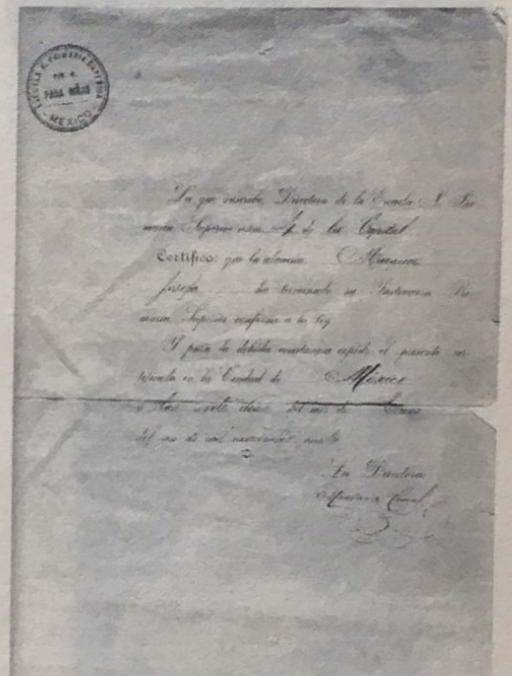 ESCUELA N. PRIMARIA SUPERIOR
NUM. 4
PARA NIÑAS
MEXICO
La que suscribe, Directora de la Escuela N. Pri
maria Superior núm. 4 de la Capital
Certifico: que la alumna
Josefa ha terminado su Instrucción Pri
maria Superior conforme a la ley
Y para la debida constancia expide el presente cer
tificado en la Ciudad de México
a los veinte dos del mes de Enero
del año de mil novecientos
La Directora